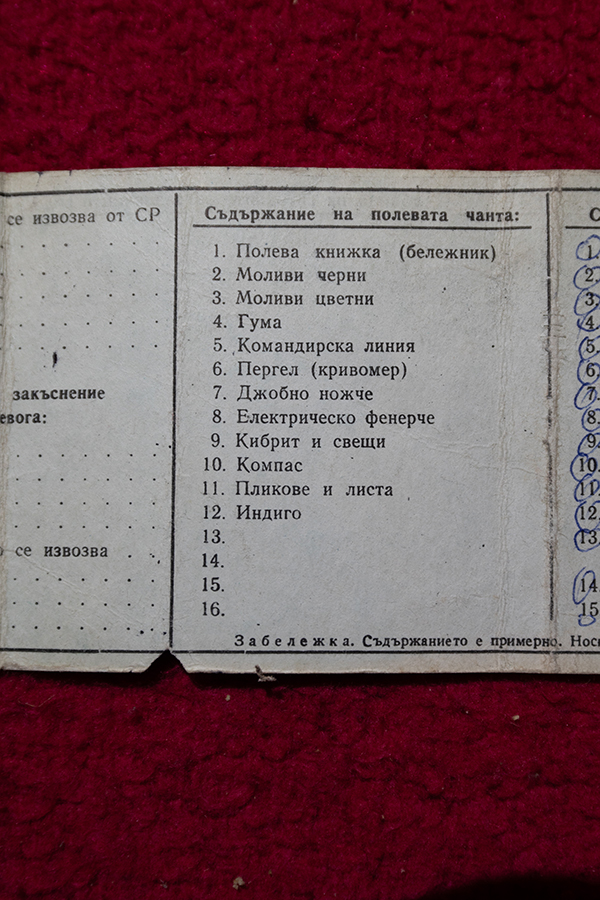 се извозва от СР
закъснение
евога:
се извозва
Съдържание на полевата чанта:
1. Полева книжка (бележник)
2. Моливи черни
3. Моливи цветни
4. Гума
5. Командирска линия
6. Пергел (кривомер)
7. Джобно ножче
8. Електрическо фенерче
9. Кибрит и свещи
10. Компас
11. Пликове и листа
12. Индиго
13.
14.
15.
16.
Забележка. Съдържанието е примерно. Нос
С
1.
2.
3.
4.
5.
6.
7.
8.
9.
10.
11.
12.
13.
14.
15